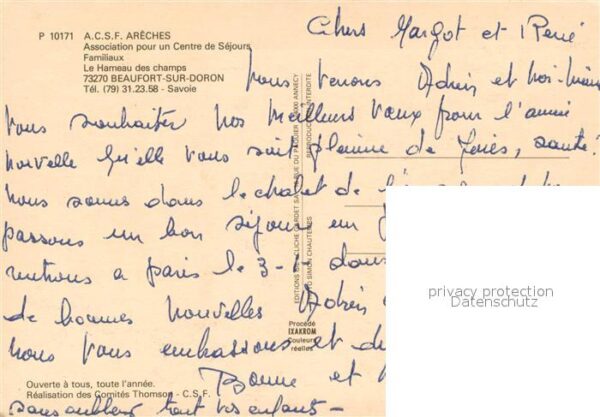 P 10171 A.C.S.F. ARÊCHES
Association pour un Centre de Séjours
Familiaux
Le Hameau des champs
73270 BEAUFORT-SUR-DORON
Tél. (79) 31.23.58 - Savoie
Chers Margot et René
Nous venons et moi-même
vous souhaiter nos meilleurs vœux pour l'année
nouvelle qu'elle vous soit pleine de joies, santé.
nous sommes dans le chalet de
passons un bon séjour en
rentrons a paris le 3-1 dans
de bonnes nouvelles
nous vous embrassons et
Bonne et
tout vos enfants -
EDITIONS CLICHE GARDET RUE DU PAQUIER ANNECY
REPRODUCTION INTERDITE
SIMON CHAUTEMPS
Procédé
IXAKROM
Couleurs
réelles
privacy protection
Datenschutz
Ouverte à tous, toute l'année.
Réalisation des Comités Thomson - C.S.F.